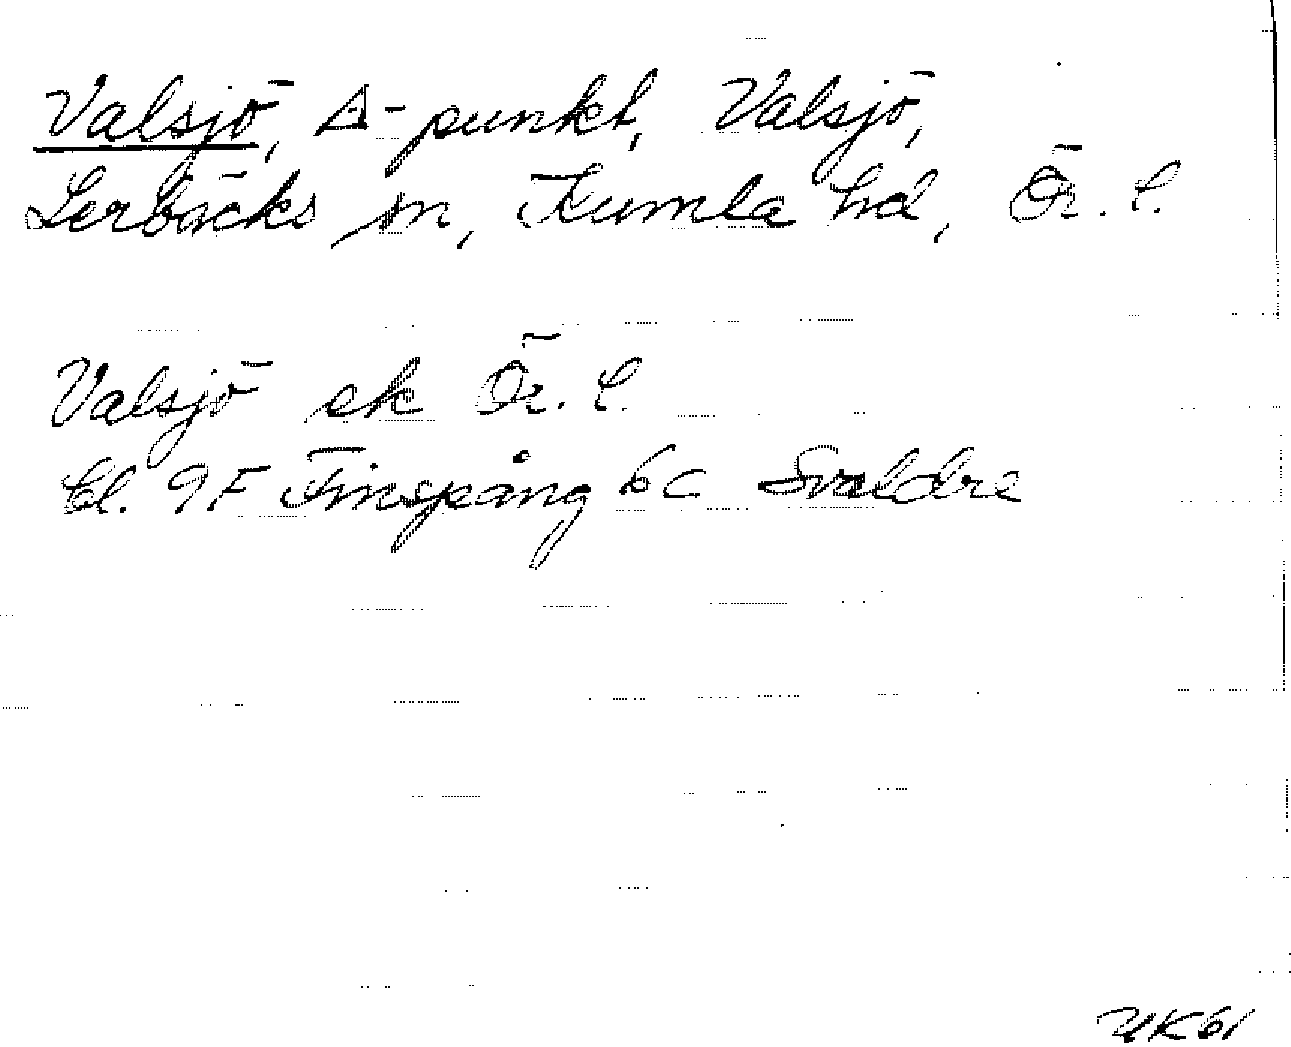 Valsjö, Δ-punkt, Valsjö,
Lerbäcks sn, Kumla hd, Ör. l.
Valsjö ek Ör. l.
bl. 9F Finspång 6c Svaldre
UK61